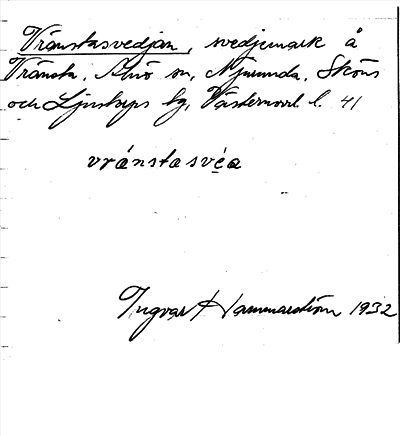 Vränstasvedjan, svedjemark å
Vränsta, Alnö sn, Njurunda, Sköns
och Ljustorps tg, Västernorrl. l. 41
vränstasvéa
Ingvar Hammarström 1932